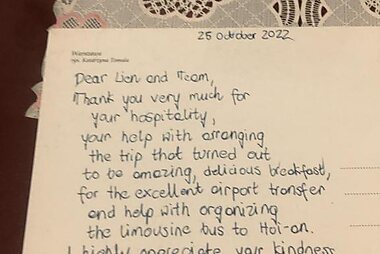 25 October 2022
Warszawa
rys. Katarzyna Tomala
Dear Lien and Team,
Thank you very much for
your hospitality,
your help with arranging
the trip that turned out
to be amazing, delicious breakfast,
for the excellent airport transfer
and help with organizing
the limousine bus to Hoi-an.
I highly appreciate your kindness